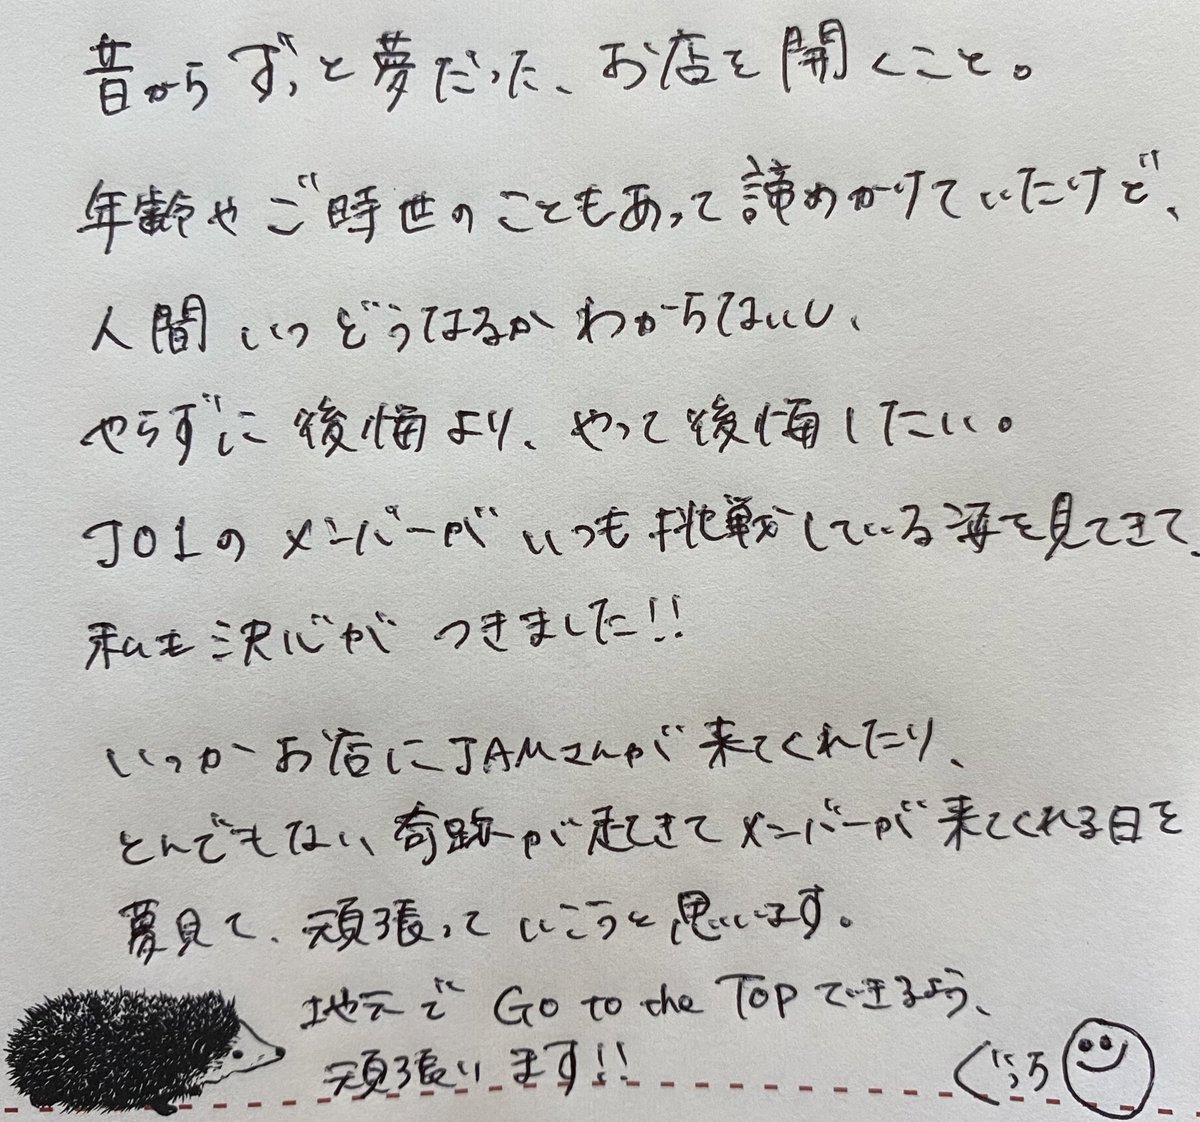 昔からずっと夢だった、お店を開くこと。
年齢やご時世のこともあって諦めかけていたけど、
人間いつどうなるかわからないし、
やらずに後悔より、やって後悔したい。
JO1のメンバーがいつも挑戦している姿を見てきて、
私も決心がつきました!!
いつかお店にJAMさんが来てくれたり、
とんでもない奇跡が起きてメンバーが来てくれる日を
夢見て、頑張っていこうと思います。
地元で Go to the TOPできるよう、
頑張ります!!
ぐっち